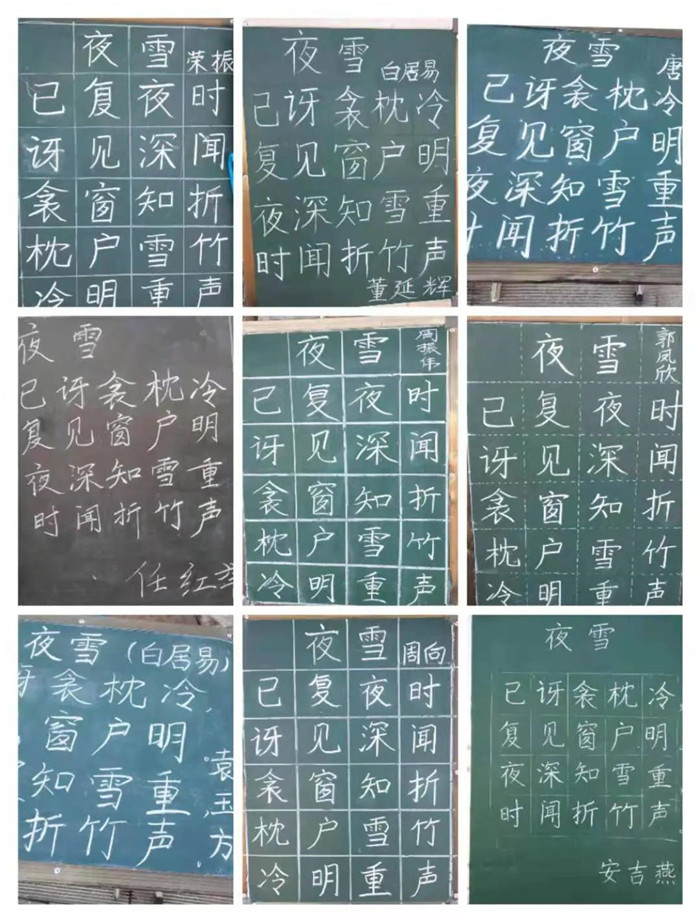 夜雪
荣振
已讶衾枕冷
复见窗户明
夜深知雪重
时闻折竹声
夜雪
白居易
已讶衾枕冷
复见窗户明
夜深知雪重
时闻折竹声
董延辉
夜雪
唐
已讶衾枕冷
复见窗户明
夜深知雪重
时闻折竹声
夜雪
已讶衾枕冷
复见窗户明
夜深知雪重
时闻折竹声
任红
夜雪
周振伟
已讶衾枕冷
复见窗户明
夜深知雪重
时闻折竹声
夜雪
郭凤欣
已讶衾枕冷
复见窗户明
夜深知雪重
时闻折竹声
夜雪（白居易）
讶衾枕冷
窗户明
知雪重
折竹声
袁玉方
夜雪
周向
已讶衾枕冷
复见窗户明
夜深知雪重
时闻折竹声
夜雪
已讶衾枕冷
复见窗户明
夜深知雪重
时闻折竹声
安吉燕